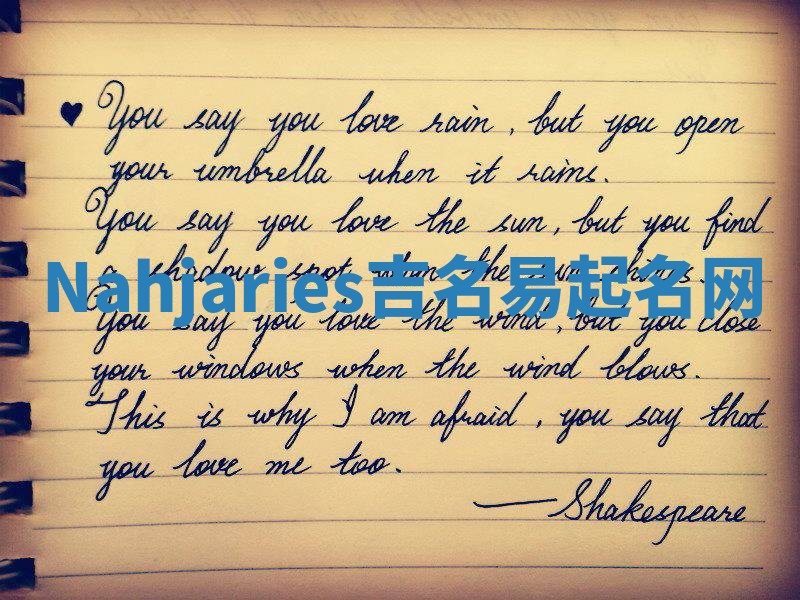 ♥ You say you love rain, but you open
your umbrella when it rains.
You say you love the sun, but you find
a shadow spot when the sun shines.
Nahjaries吉名易起名网
You say you love the wind, but you close
your windows when the wind blows.
This is why I am afraid, you say that
you love me too.
—Shakespeare